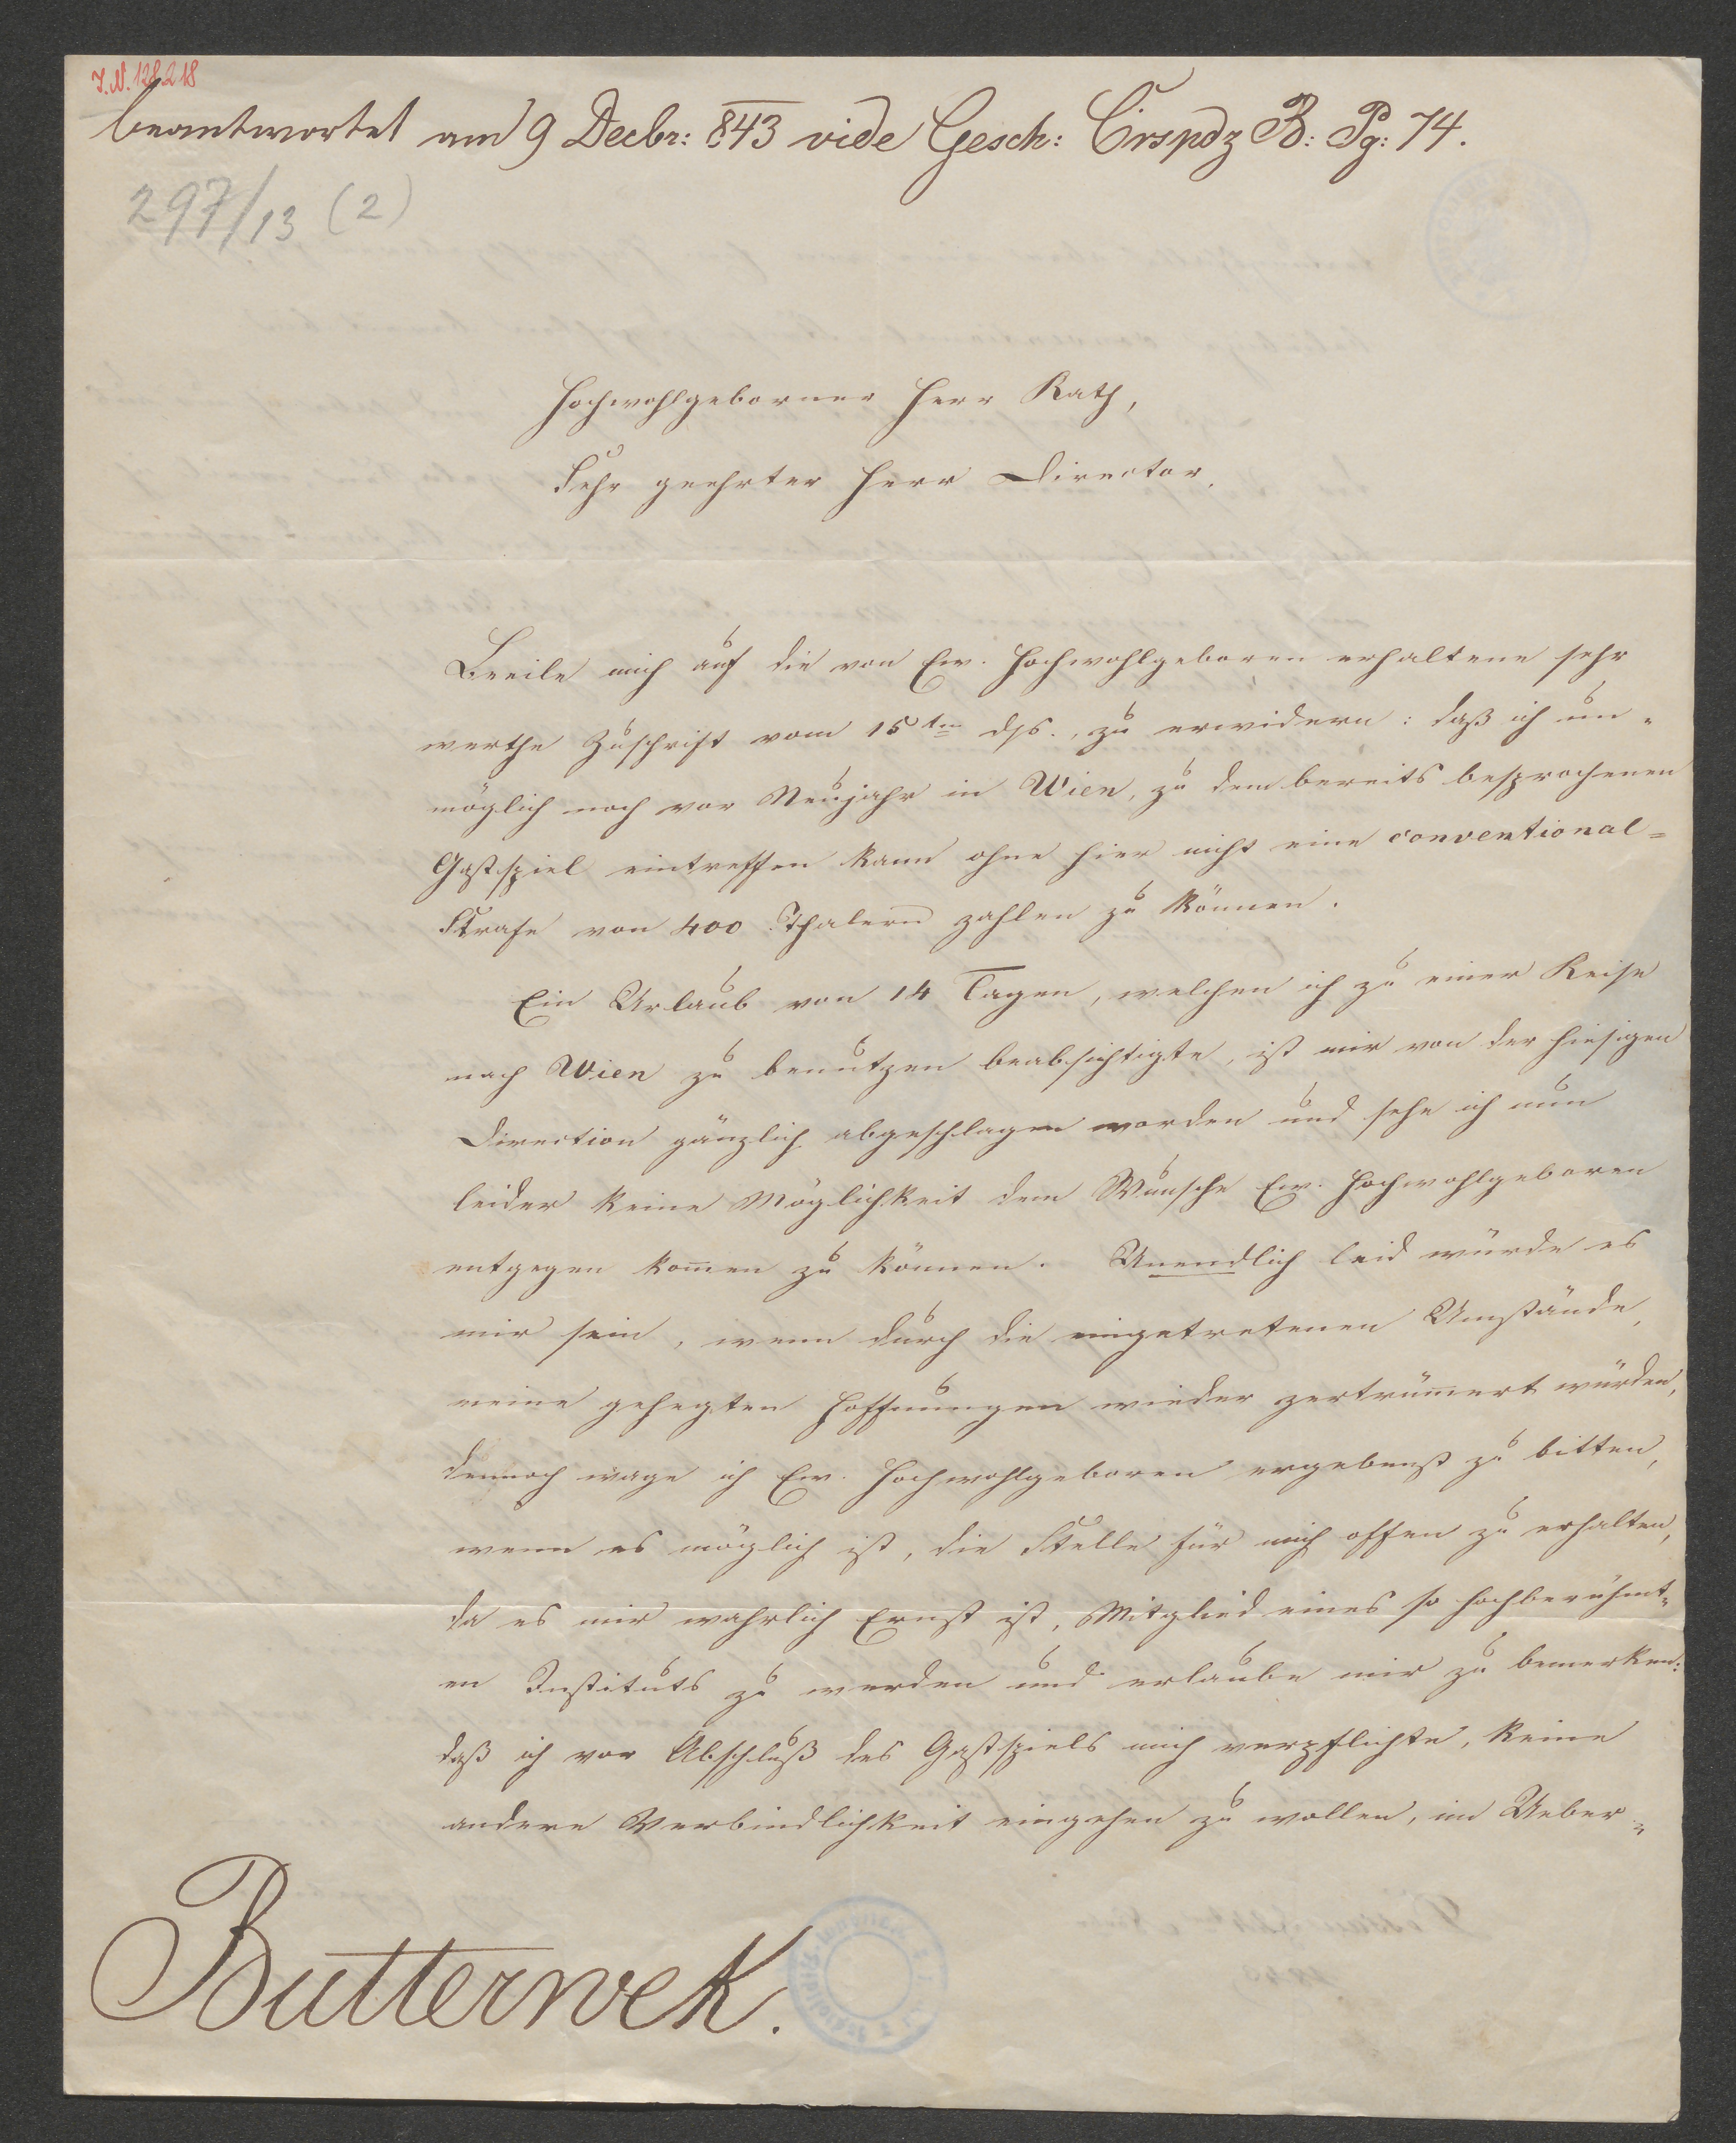 I.N. 128218
beantwortet am 9 Decbr: 843 vide Gesch: Crspdz B: Pg: 74.
297/13 (2)
Hochwohlgeborner Herr Rath,
Sehr geehrter Herr Director,
Beeile mich auf die von Ew. Hochwohlgeboren erhaltene sehr
werthe Zuschrift vom 15ten djs., zu erwidern: daß ich un-
möglich noch vor Neujahr in Wien, zu dem bereits besprochenen
Gastspiel eintreffen kann ohne hier nicht eine conventional-
Strafe von 400 Thalern zahlen zu können.
Ein Urlaub von 14 Tagen, welchen ich zu einer Reise
nach Wien zu benutzen beabsichtigte, ist mir von der hiesigen
Direction gänzlich abgeschlagen worden und sehe ich nun
leider keine Möglichkeit dem Wunsche Ew. Hochwohlgeboren
entgegen kom̄en zu können. Unendlich leid würde es
mir sein, wenn durch die eingetretenen Umstände,
meine gehegten Hoffnungen wieder zertrüm̄ert würden,
dennoch wage ich Ew. Hochwohlgeboren ergebenst zu bitten,
wenn es möglich ist, die Stelle für mich offen zu erhalten,
da es mir wahrlich Ernst ist, Mitglied eines so hochberühmt-
en Instituts zu werden und erlaube mir zu bemerken:
daß ich vor Abschluß des Gastspiels mich verpflichte, keine
andere Verbindlichkeit eingehen zu wollen, im Ueber-
Butterwek.